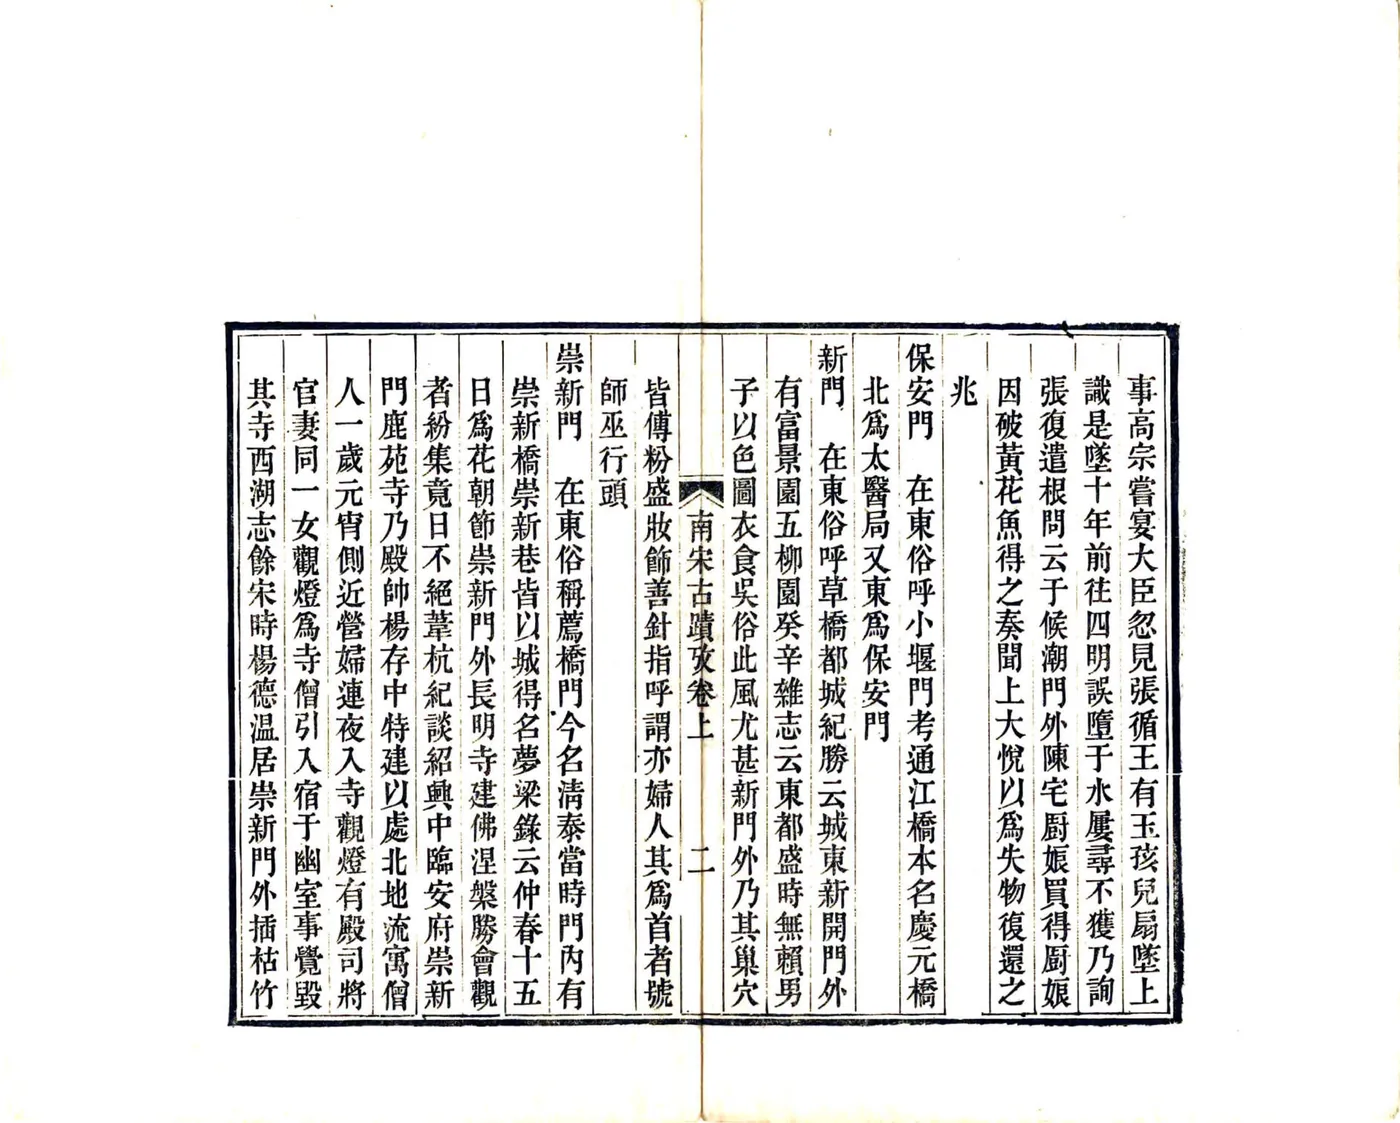 事高宗嘗宴大臣忽見張循王有玉孩兒扇墜上
識是墜十年前往四明誤墮于水屢尋不獲乃詢
張復遣根問云于候潮門外陳宅廚娠買得廚娠
因破黃花魚得之奏聞上大悅以爲失物復還之
兆
保安門　在東俗呼小堰門考通江橋本名慶元橋
北爲太醫局又東爲保安門
新門　在東俗呼草橋都城紀勝云城東新開門外
有富景園五柳園癸辛雜志云東都盛時無賴男
子以色圖衣食吳俗此風尤甚新門外乃其巢穴
南宋古蹟攷卷上　二
皆傅粉盛妝飾善針指呼謂亦婦人其爲首者號
師巫行頭
崇新門　在東俗稱薦橋門今名清泰當時門內有
崇新橋崇新巷皆以城得名夢梁錄云仲春十五
日爲花朝節崇新門外長明寺建佛涅槃勝會觀
者紛集竟日不絕葦杭紀談紹興中臨安府崇新
門鹿苑寺乃殿帥楊存中特建以處北地流寓僧
人一歲元宵側近營婦連夜入寺觀燈有殿司將
官妻同一女觀燈爲寺僧引入宿于幽室事覺毀
其寺西湖志餘宋時楊德溫居崇新門外插枯竹